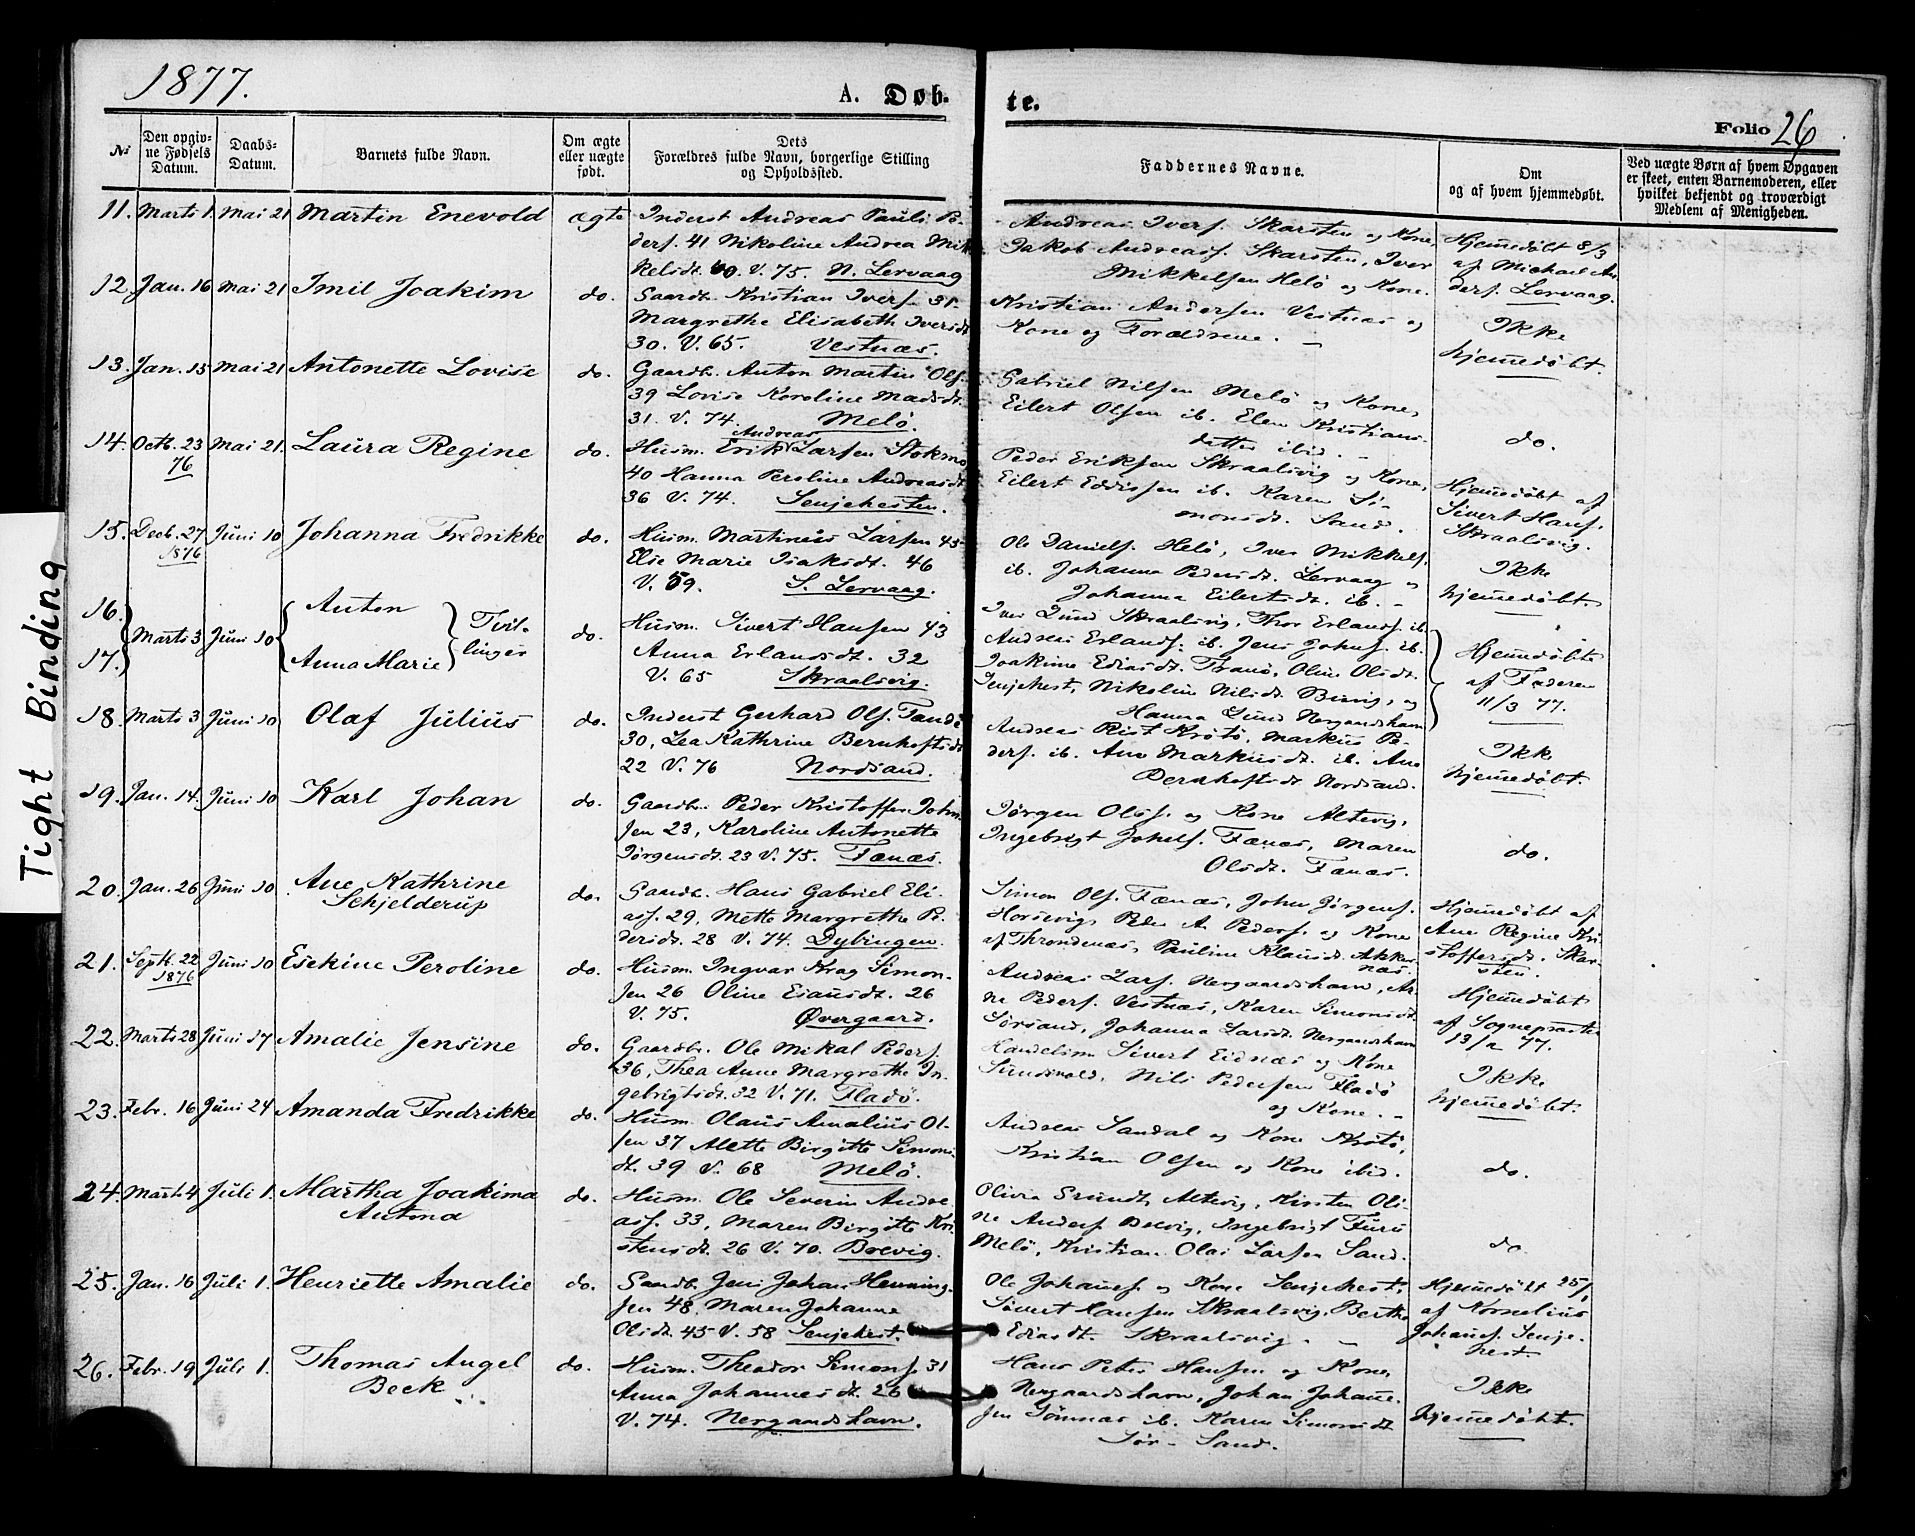 1877.
A. Døb- te.
Folio 26
Tight Binding
№
Den opgiv-
ne Fødsels
Datum.
Daabs-
Datum.
Barnets fulde Navn.
Om ægte
eller uægte
født.
Dets
Forældres fulde Navn, borgerlige Stilling
og Opholdssted.
Faddernes Navne.
Om
og af hvem hjemmedøbt.
Ved uægte Børn af hvem Opgaven
er skeet, enten Barnemoderen, eller
hvilket bekjendt og troværdigt
Medlem af Menigheden.
11. Marts 1. Mai 21 Martin Enevold ægte
Inderst Andreas Pauli Pe-
ders. 41 Nikoline Andrea Mik
kelsdt. 40. V. 75. N. Lervaag
Andreas Ivers. Skarsten og Kone,
Jakob Andreass. Skarsten, Iver
Mikkelsen Helø og Kone.
Hjemmedøbt 8/3
af Michael An
ders. Lervaag.
12. Jan. 16 Mai 21 Imil Joakim do.
Gaardb. Kristian Ivers. 31.
Margrethe Elisabeth Iversdt
30. V. 65. Vestnæs.
Kristian Andersen Vestnæs og
Kone og Forældrene. –
Ikke
hjemmedøbt.
13. Jan. 15 Mai 21 Antonette Lovise do.
Gaardb. Anton Martin Ols.
39 Lovise Karoline Madsdt.
31. V. 74. Melø.
Gabriel Nilsen Melø og Kone,
Eilert Olsen ib. Elen Kristians-
datter ibid. –
do.
14. Octb. 23
76
Mai 21. Laura Regine do.
Andreas
Husm. Erik Larsen Stokmo
40 Hanna Peroline Andreasdt
36 V. 74. Senjehesten.
Peder Eriksen Skraalsvig og Kone,
Eilert Eddissen ib. Karen Si-
monsdt. Sand.
Hjemmedøbt af
Sivert Hans.
Skraalsvig.
15. Decb. 27
1876
Juni 10 Johanna Fredrikke do.
Husm. Martinus Larsen 45
Else Marie Isaksdt. 46
V. 59. S. Lervaag.
Ole Daniels. Helø, Iver Mikkels.
ib. Johanna Pedersdt. Lervaag og
Johanna Eilertsdt. ib. –
Ikke
hjemmedøbt.
16.
17.
Marts 3 Juni 10
Anton
Anna Marie
Tvil-
linger
do.
Husm. Sivert Hansen 43
Anna Erlandsdt. 32
V. 65 Skraalsvig.
Iver Lund Skraalsvig, Thor Erlands. ib.
Andreas Erlands. ib. Jens Johns. ib.
Joakime Ediasdt. Tranø, Oline Olsdt.
Senjehest, Nikoline Nilsdt. Brevig, og
Hanna Lund Nergaardshavn
Hjemmedøbte
af Faderen
11/3 77.
18. Marts 3 Juni 10 Olaf Julius do.
Inderst Gerhard Ols. Tande
30, Lea Kathrine Bernhoftsdt
22 V. 76 Nordsand.
Andreas Rist Krøtø, Markus Pe-
ders. ib. Ane Markusdt. ib. Ane
Bernhoftsdt. Nordsand.
Ikke
hjemmedøbt.
19. Jan. 14. Juni 10 Karl Johan do.
Gaardb. Peder Kristoffer Johan
sen 23, Karoline Antonette
Jørgensdt. 23 V. 75. Fænæs.
Jørgen Ols. og Kone Altevig,
Ingebrigt Jakels. Fænæs, Maren
Olsdt. Fænæs.
do.
20. Jan. 26 Juni 10
Ane Kathrine
Schjelderup
do.
Gaardb. Hans Gabriel Eli-
ass. 29, Mette Margrethe Pe-
dersdt. 28 V. 74. Dybingen.
Simon Ols. Fænæs, John Jørgens.
Horsevig, Peder A. Peders. og Kone
af Throndenæs, Pauline Klausdt. Akker-
næs
Hjemmedøbt af
Ane Regine Kri-
stoffersdt. Skar-
sten.
21. Septb. 22
1876
Juni 10 Esekine Peroline do.
Husm. Ingvar Krag Simon-
sen 26 Oline Esausdt. 26
V. 75. Øvergaard.
Andreas Lars. Nergaardshavn, Ar-
ne Peders. Vestnæs, Karen Simonsdt.
Sørsand, Johanna Larsdt. Nergaardshavn
Hjemmedøbt
af Sognepræsten
13/2 77.
22. Marts 28 Juni 17 Amalie Jensine do.
Gaardbr. Ole Mikal Peders.
36, Thea Anne Margrethe In-
gebrigtsdt. 32 V. 71. Fladø.
Handelsm. Sivert Eidnæs og Kone
Sundsvold, Nils Pedersen Fladø
og Kone. –
Ikke
hjemmedøbt.
23. Febr. 16 Juni 24 Amanda Fredrikke do.
Husm. Olaus Amalius Ol-
sen 37 Alette Birgitte Simons
dt. 39 V. 68 Melø.
Andreas Sandal og Kone Krøtø,
Kristian Olsen og Kone ibid.
do.
24. Marts 4 Juli 1.
Martha Joakima
Antona
do.
Husm. Ole Severin Andre
ass. 33, Maren Birgitte Kri-
stensdt. 26 V. 70. Brevig.
Olivia Grundt, Altevig, Kirsten Oli-
ne Anders. Brevig, Ingebrigt Furu
Melø, Kristian Olai Larsen Sand.
do
25. Jan. 16 Juli 1. Henriette Amalie do.
Gaardb. Jens Johan Henning-
sen 48, Maren Johanne
Olsdt. 45 V. 58 Senjehest.
Ole Johannes. og Kone Senjehest,
Sivert Hansen Skraalsvig, Berthe
Ediasdt. Skraalsvig. –
Hjemmedøbt 25/1
af Kornelius
Johanes. Senje-
hest.
26. Febr. 19 Juli 1.
Thomas Angel
Beck
do.
Husm. Theodor Simons. 31
Anna Johannesdt. 26
V. 74. Nergaardshavn.
Hans Peter Hansen og Kone,
Nergaardshavn, Johan Johanne-
sen Sømnæs ib. Karen Simonsdt
Sør-Sand.
Ikke
hjemmedøbt.